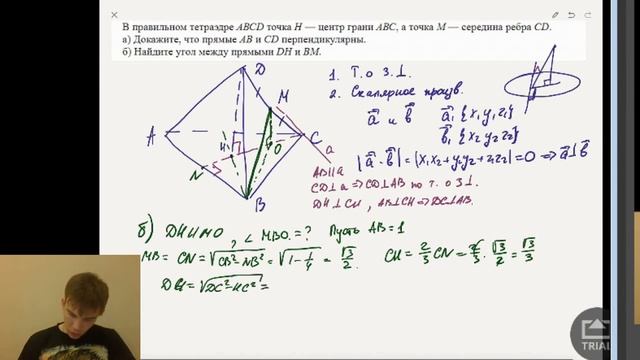 В правильном тетраэдре ABCD точка H — центр грани ABC, а точка M — середина ребра CD.
а) Докажите, что прямые AB и CD перпендикулярны.
б) Найдите угол между прямыми DH и BM.
1. Т. о 3⊥.
2. Скалярное произв.
a⃗ и b⃗ a⃗, {x₁ y₁ z₁}
b⃗, {x₂ y₂ z₂}
|a⃗·b⃗| = |x₁x₂+y₁y₂+z₁z₂| = 0 ⇒ a⃗⊥b⃗
D
M
A
H
O
C
N
a
B
AB∥a
CD⊥a ⇒ CD⊥AB по т. о 3⊥.
DH⊥CH, AB⊥CH ⇒ DC⊥AB.
б) DH∥MO, ∠MBO=? Пусть AB=1
MB = CN = √(CB²-NB²) = √(1-1/4) = √3/2. CH = 2/3 CN = 2/3 · √3/2 = √3/3
DH = √(DC²-HC²) =
TRIAL